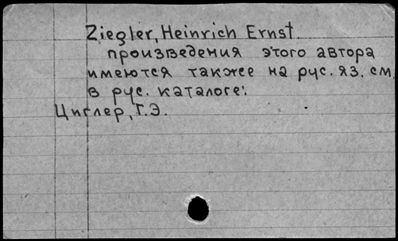 Ziegler, Heinrich Ernst.
произведения этого автора
имеются также на рус. яз. см.
в рус. каталоге:
Циглер, Г.Э.